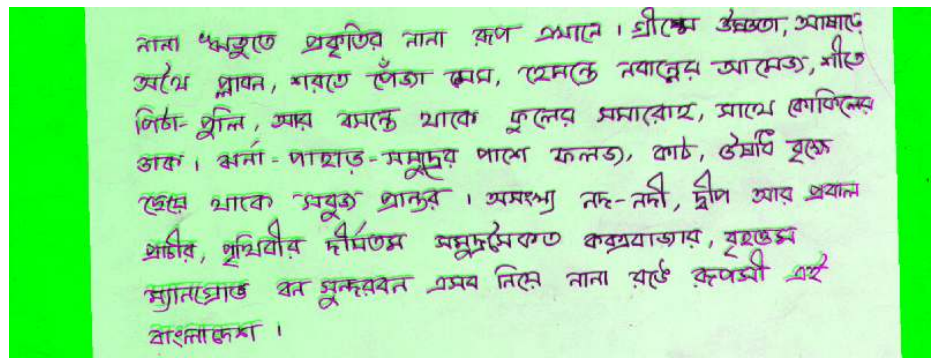 নানা ঋতুতে প্রকৃতির নানা রূপ এখানে। গ্রীষ্মে উষ্ণতা, আষাঢ়ে
অথৈ প্লাবন, শরতে পেঁজা মেঘ, হেমন্তে নবান্নের আমেজ, শীতে
পিঠা-পুলি, আর বসন্তে থাকে ফুলের সমারোহ, সাথে কোকিলের
ডাক। ঝর্না-পাহাড়-সমুদ্রের পাশে ফলজ, কাঠ, ঔষধি বৃক্ষে
ছেয়ে থাকে সবুজ প্রান্তর। অসংখ্য নদ-নদী, দ্বীপ আর প্রবাল
প্রাচীর, পৃথিবীর দীর্ঘতম সমুদ্রসৈকত কক্সবাজার, বৃহত্তম
ম্যানগ্রোভ বন সুন্দরবন এসব নিয়ে নানা রঙে রূপসী এই
বাংলাদেশ।